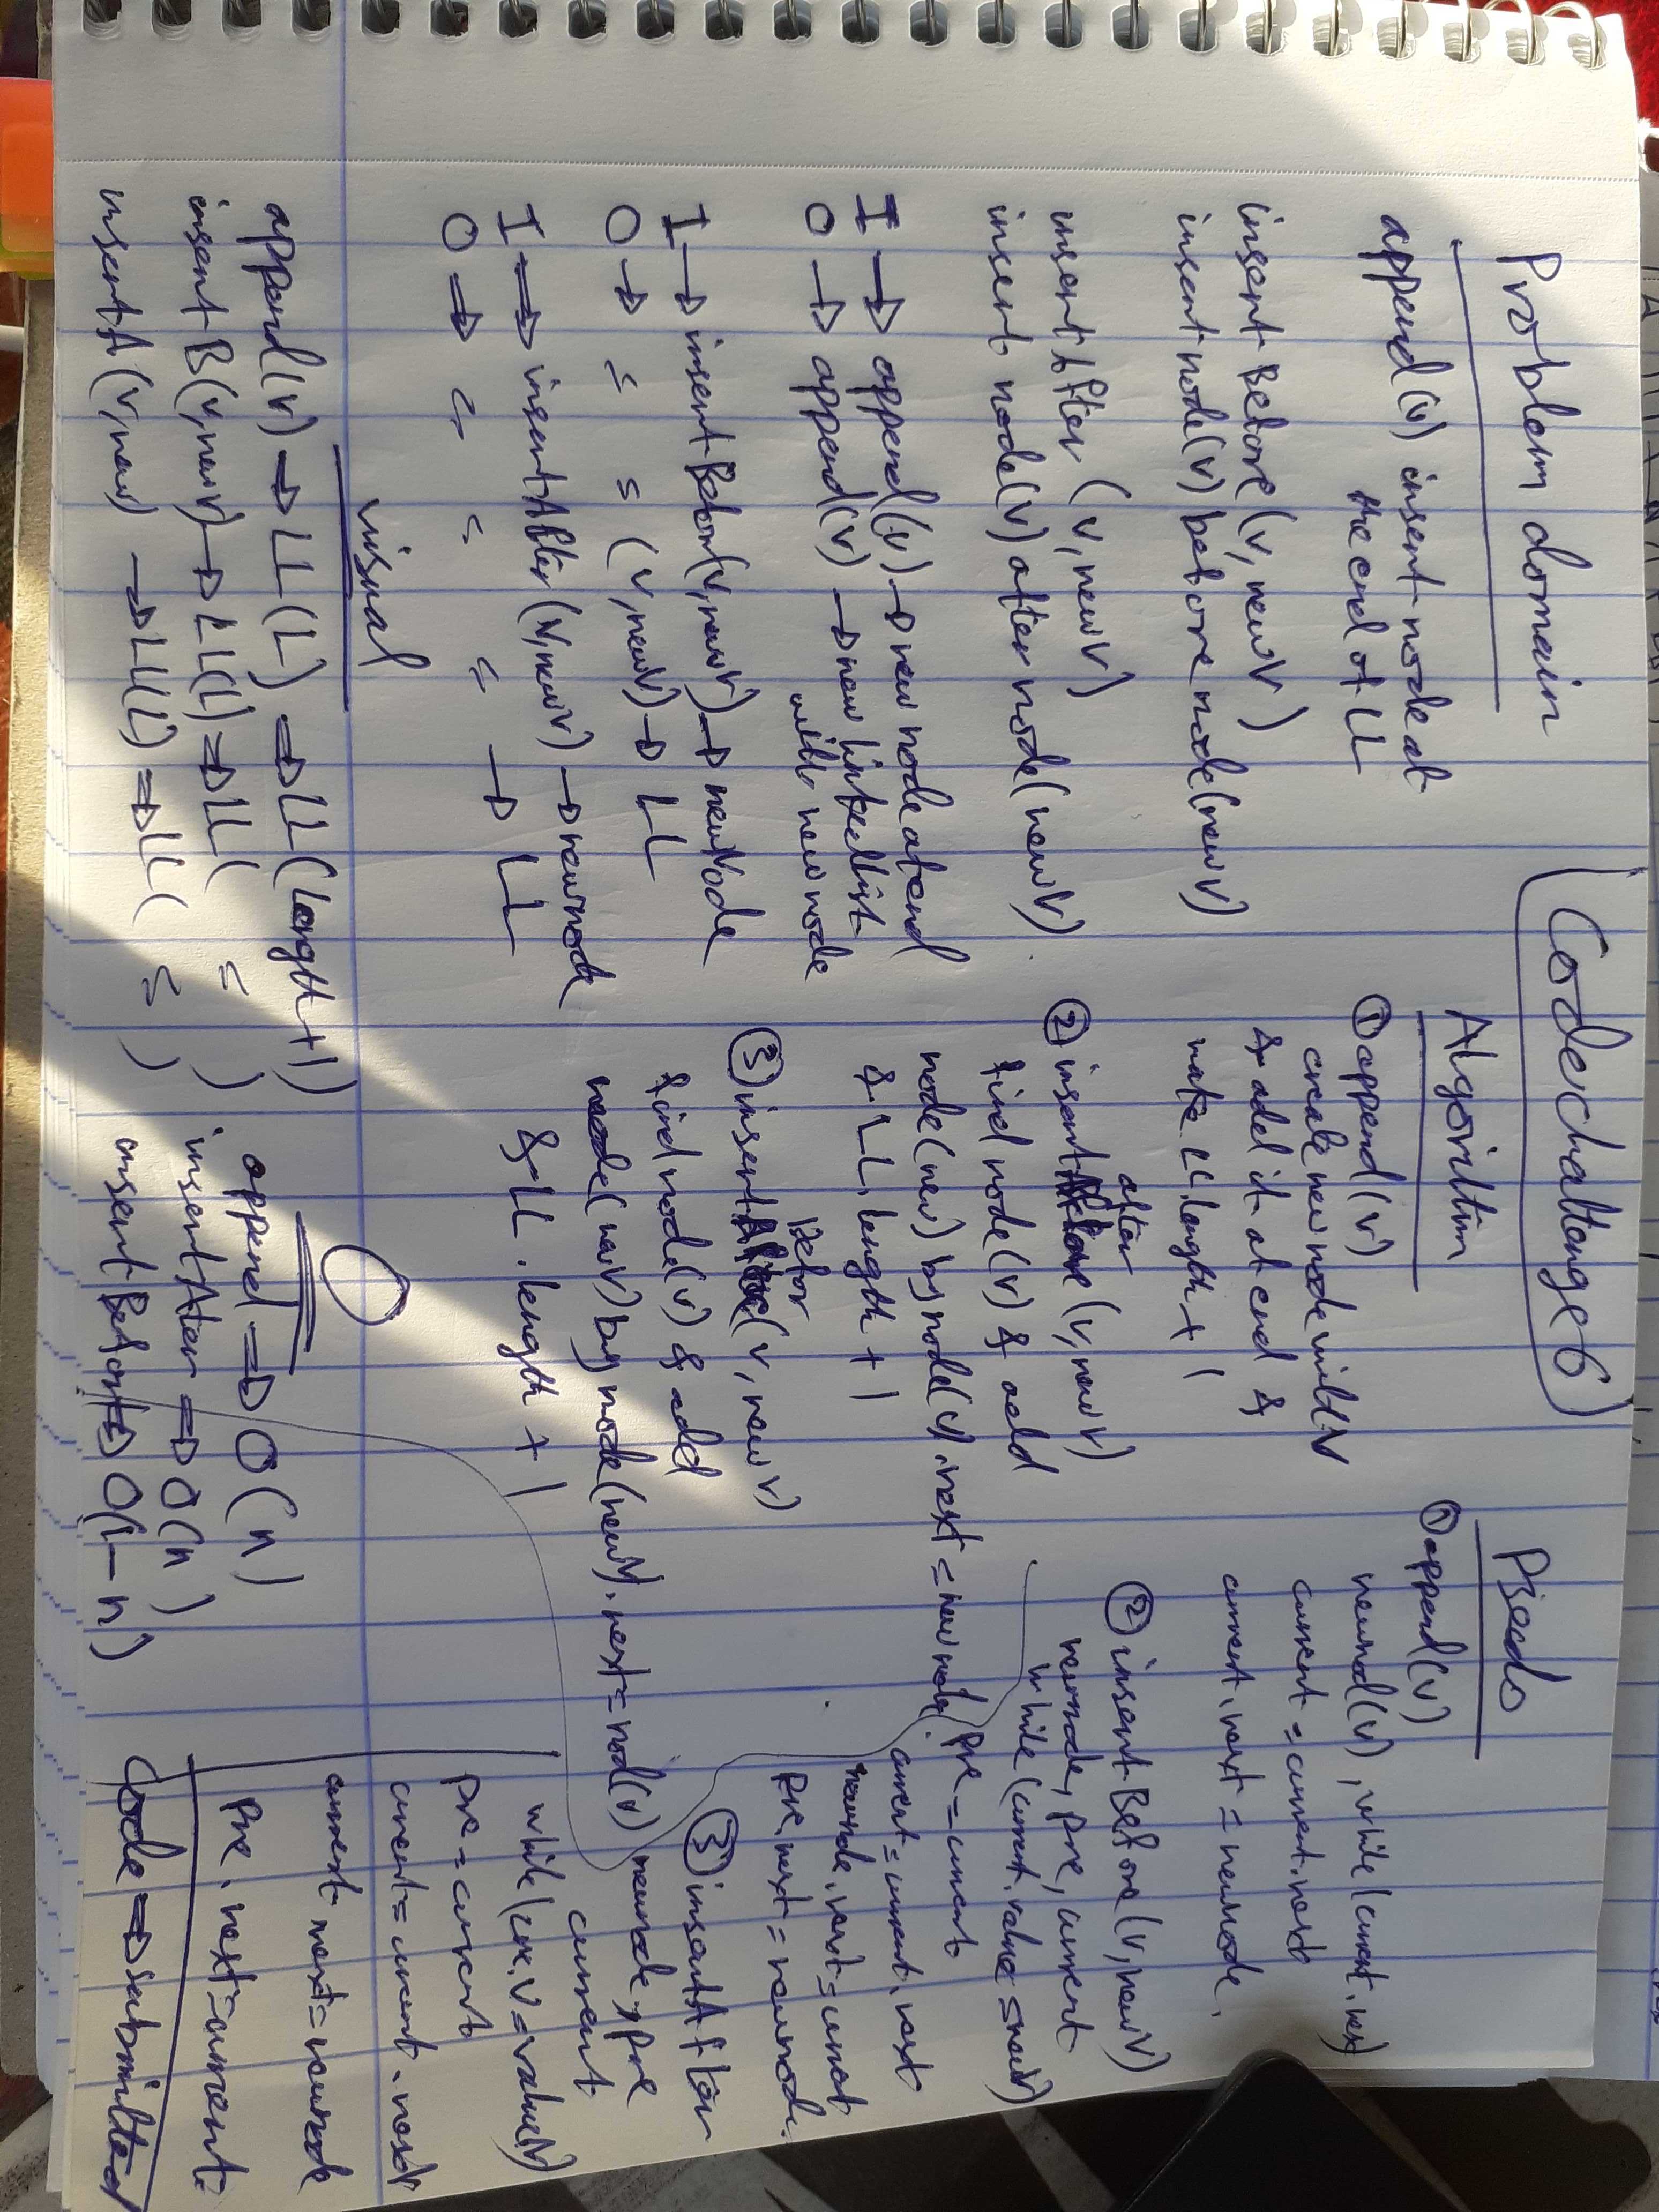 Code challange 6
Problem domain
append(v) insert node at
the end of LL
insert Before (v, newV)
insert node(v) before node(newV)
insert After (v, newV)
insert node(v) after node(newV)
I → append(v) → new node at end
O → append(v) → new linkedlist
with new node
I → insert Before(v, newV) → newNode
O → = = (v, newV) → LL
I ⇒ insertAfter (v, newV) → newnode
O ⇒ = = = → LL
visual
append(v) → LL(L) ⇒ LL(length+1)
insert B(v, newv) → LL(L) ⇒ LL( = )
insertA (v, new) → LL(L) ⇒ LL( = )
Algorithm
① append(v)
create new node with V
& add it at end &
make LL.length + 1
② insert after (v, newV)
find node(v) & add
node(new) by node(v).next = new node.
& LL.length + 1
③ insert Befor (v, newV)
find node(v) & add
node(newV) by node(newV).next = nod(v)
& LL.length + 1
O
append ⇒ O(n)
insertAter ⇒ O(n)
insert Before ⇒ O(1-n)
Psedo
① append(v)
newnod(v), while(current.next)
current = current.next
current.next = newnode.
② insertBefore(v, newV)
newnode, pre, current
while (current.value = newV)
pre = current
current = current.next
newnode.next = currnt
pre.next = newnode.
③ insertAfter
newnode, pre
current
while(pre.v = valueN)
pre = current
current = current.next
current next = newnode
pre.next = current.
Code ⇒ submitted